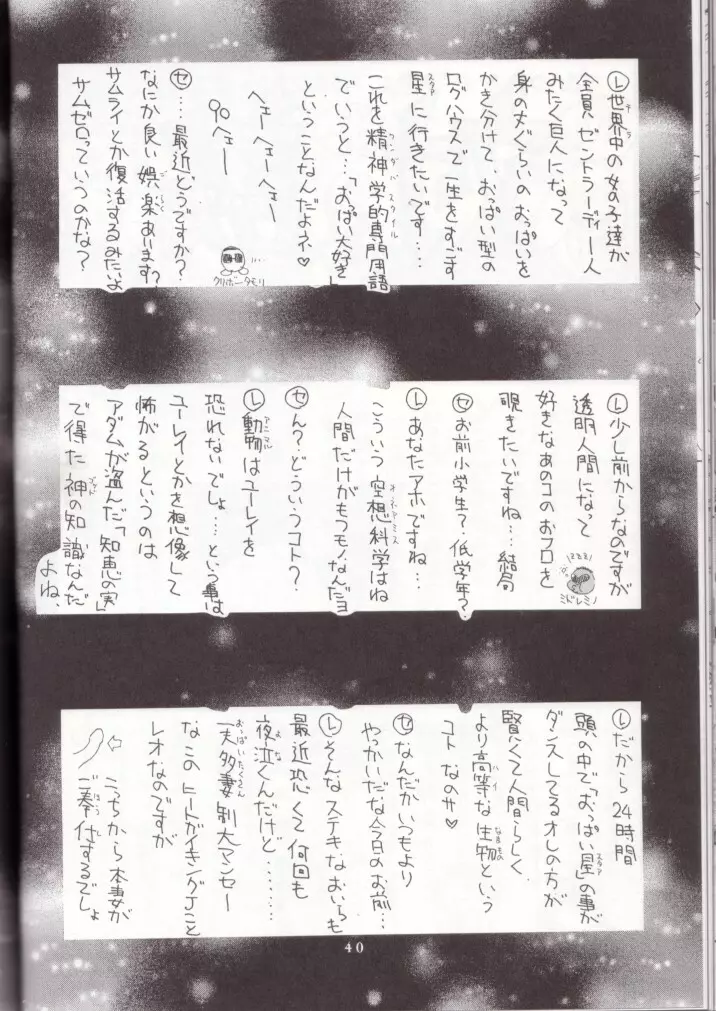 Ⓛ世界中の女の子達が
全員ゼントラーディー人
みたく巨人になって
身の丈ぐらいのおっぱいを
かき分けて、おっぱい型の
ログハウスで一生をすごす
星に行きたいです……
これを精神学的専門用語
でいうと…「おっぱい大好き」
ということなんだよネ♡
ヘェーヘェーヘェー
90ヘェー
クリボータモリ
セ…最近どうですか?
なにか良い娯楽あります?
サムライとか復活するみたいよ
サムゼロっていうのかな?
Ⓛ少し前からなのですが
透明人間になって
好きなあのコのおフロを
覗きたいですね…結局
ミドレミノ
セお前小学生?低学年?
Ⓛあなたアホですね…
こういう空想科学はね
人間だけがもつモノなんだヨ
セん?どういうコト?
Ⓛ動物はユーレイを
恐れないでしょ…という事は
ユーレイとかを想像して
怖がるというのは
アダムが盗んだ「知恵の実」
で得た神の知識なんだ
よね、
Ⓛだから24時間
頭の中で「おっぱい星」の事が
ダンスしてるオレの方が
賢くて人間らしく
より高等な生物という
コトなのサ♡
セなんだかいつもより
やっかいだな今日のお前…
Ⓛそんなステキなおいらも
最近恐くて何回も
夜泣くんだけど………
一夫多妻制大マンセー
なこのヒートガイキングJこと
レオなのですが
こっちから本妻が
ご奉仕するでしょ
40